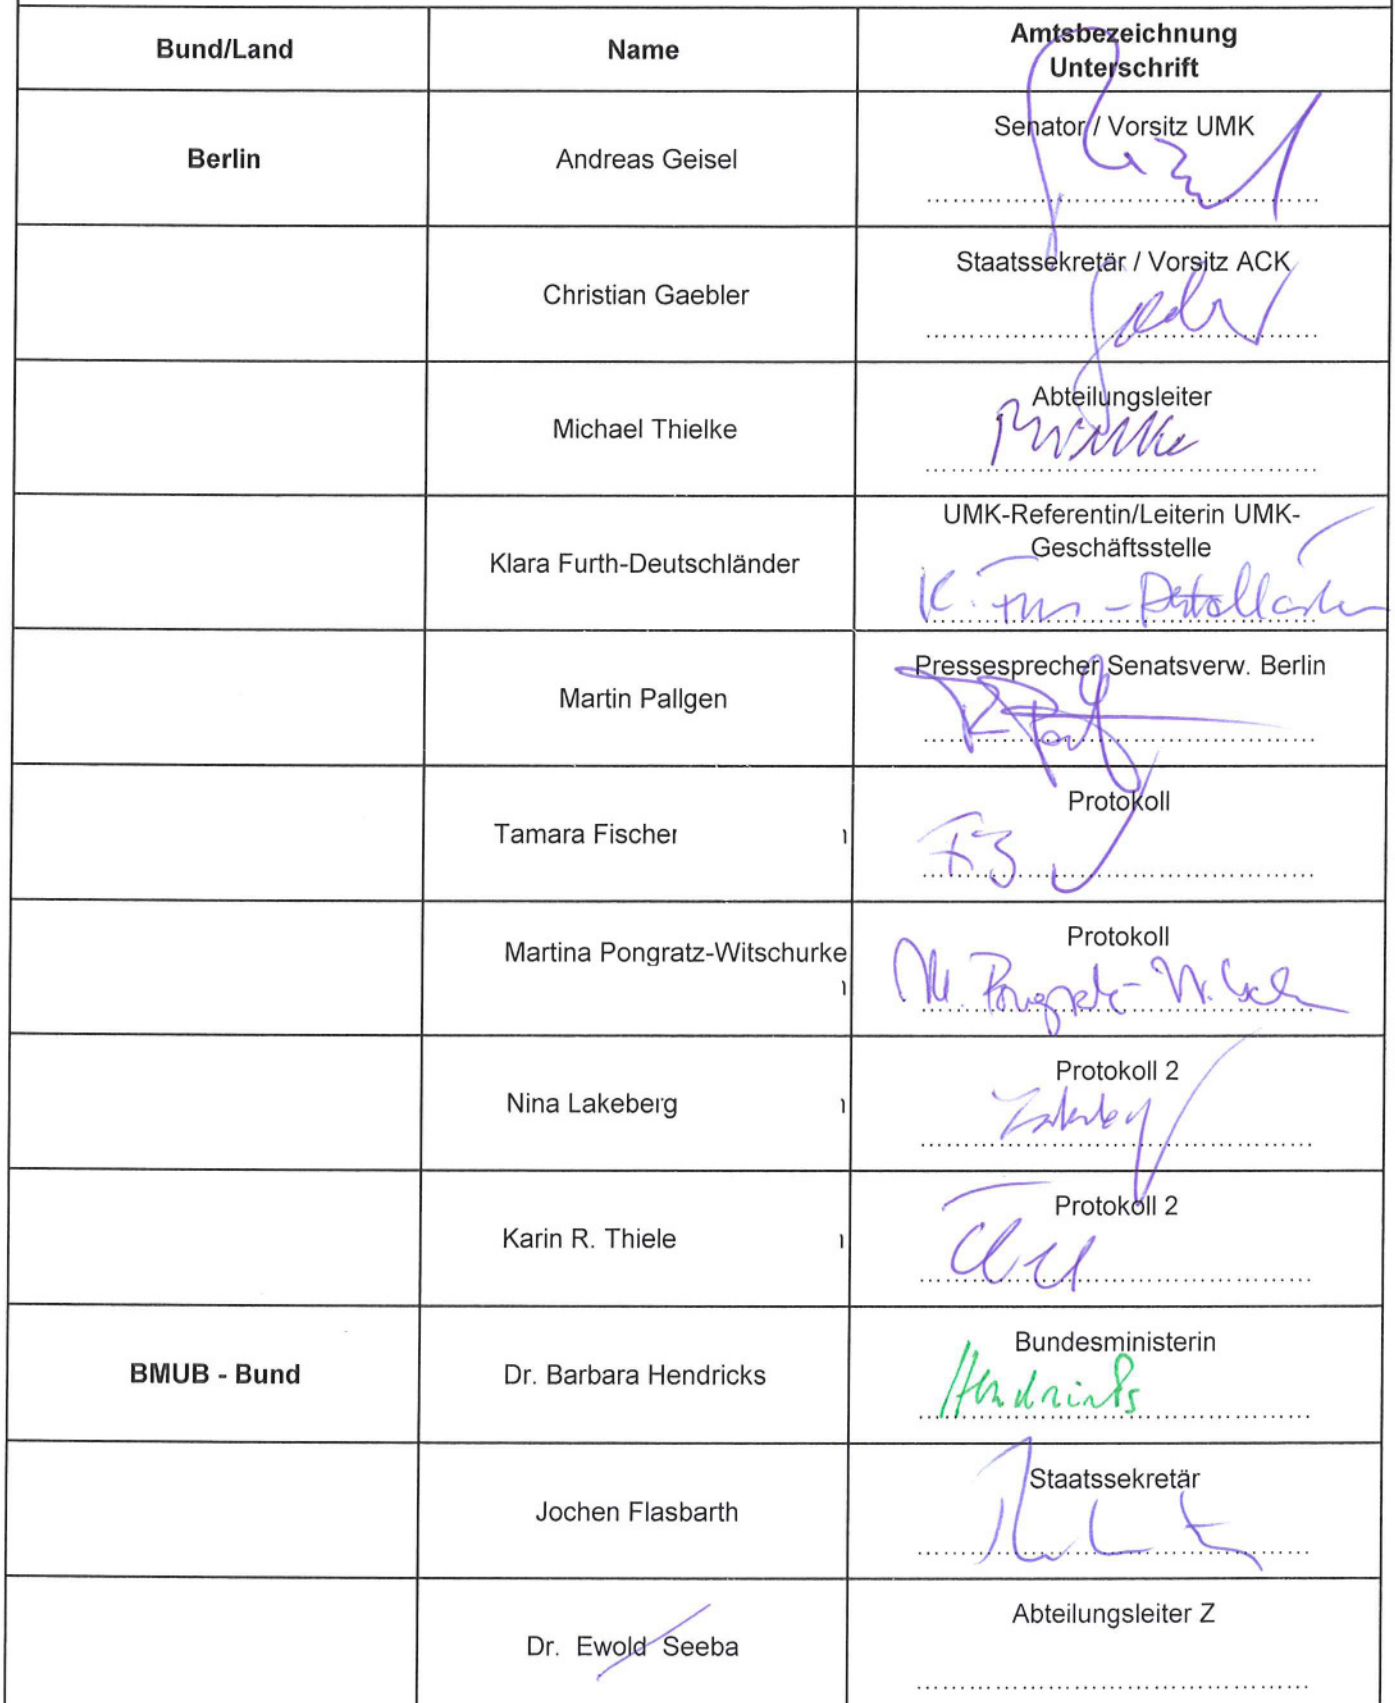 Bund/Land Name Amtsbezeichnung
Unterschrift
Berlin Andreas Geisel Senator / Vorsitz UMK
Christian Gaebler Staatssekretär / Vorsitz ACK
Michael Thielke Abteilungsleiter
Klara Furth-Deutschländer UMK-Referentin/Leiterin UMK-
Geschäftsstelle
Martin Pallgen Pressesprecher Senatsverw. Berlin
Tamara Fischer Protokoll
Martina Pongratz-Witschurke Protokoll
Nina Lakeberg Protokoll 2
Karin R. Thiele Protokoll 2
BMUB - Bund Dr. Barbara Hendricks Bundesministerin
Hendricks
Jochen Flasbarth Staatssekretär
Dr. Ewold Seeba Abteilungsleiter Z